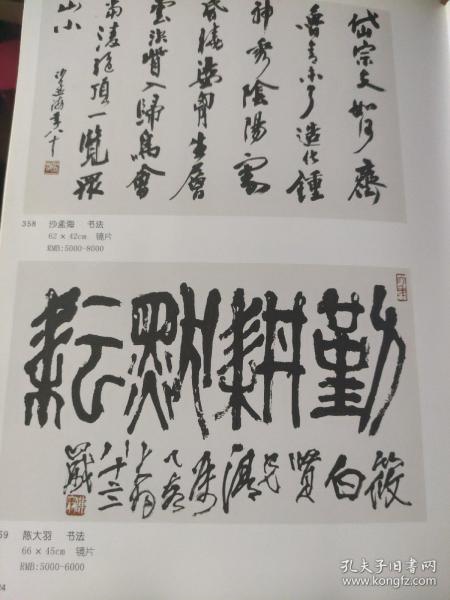 岱宗夫如何齊
魯青未了造化鍾
神秀陰陽割
昏曉盪胸生層
雲決眥入歸鳥會
當凌絕頂一覽眾
山小
沙孟海年八十
358 沙孟海 书法
62 × 42cm 镜片
RMB:5000-8000
勤耕默耘
筱
白
賢
八十二
59 陈大羽 书法
66 × 45cm 镜片
RMB:5000-6000
24
孔夫子旧书网